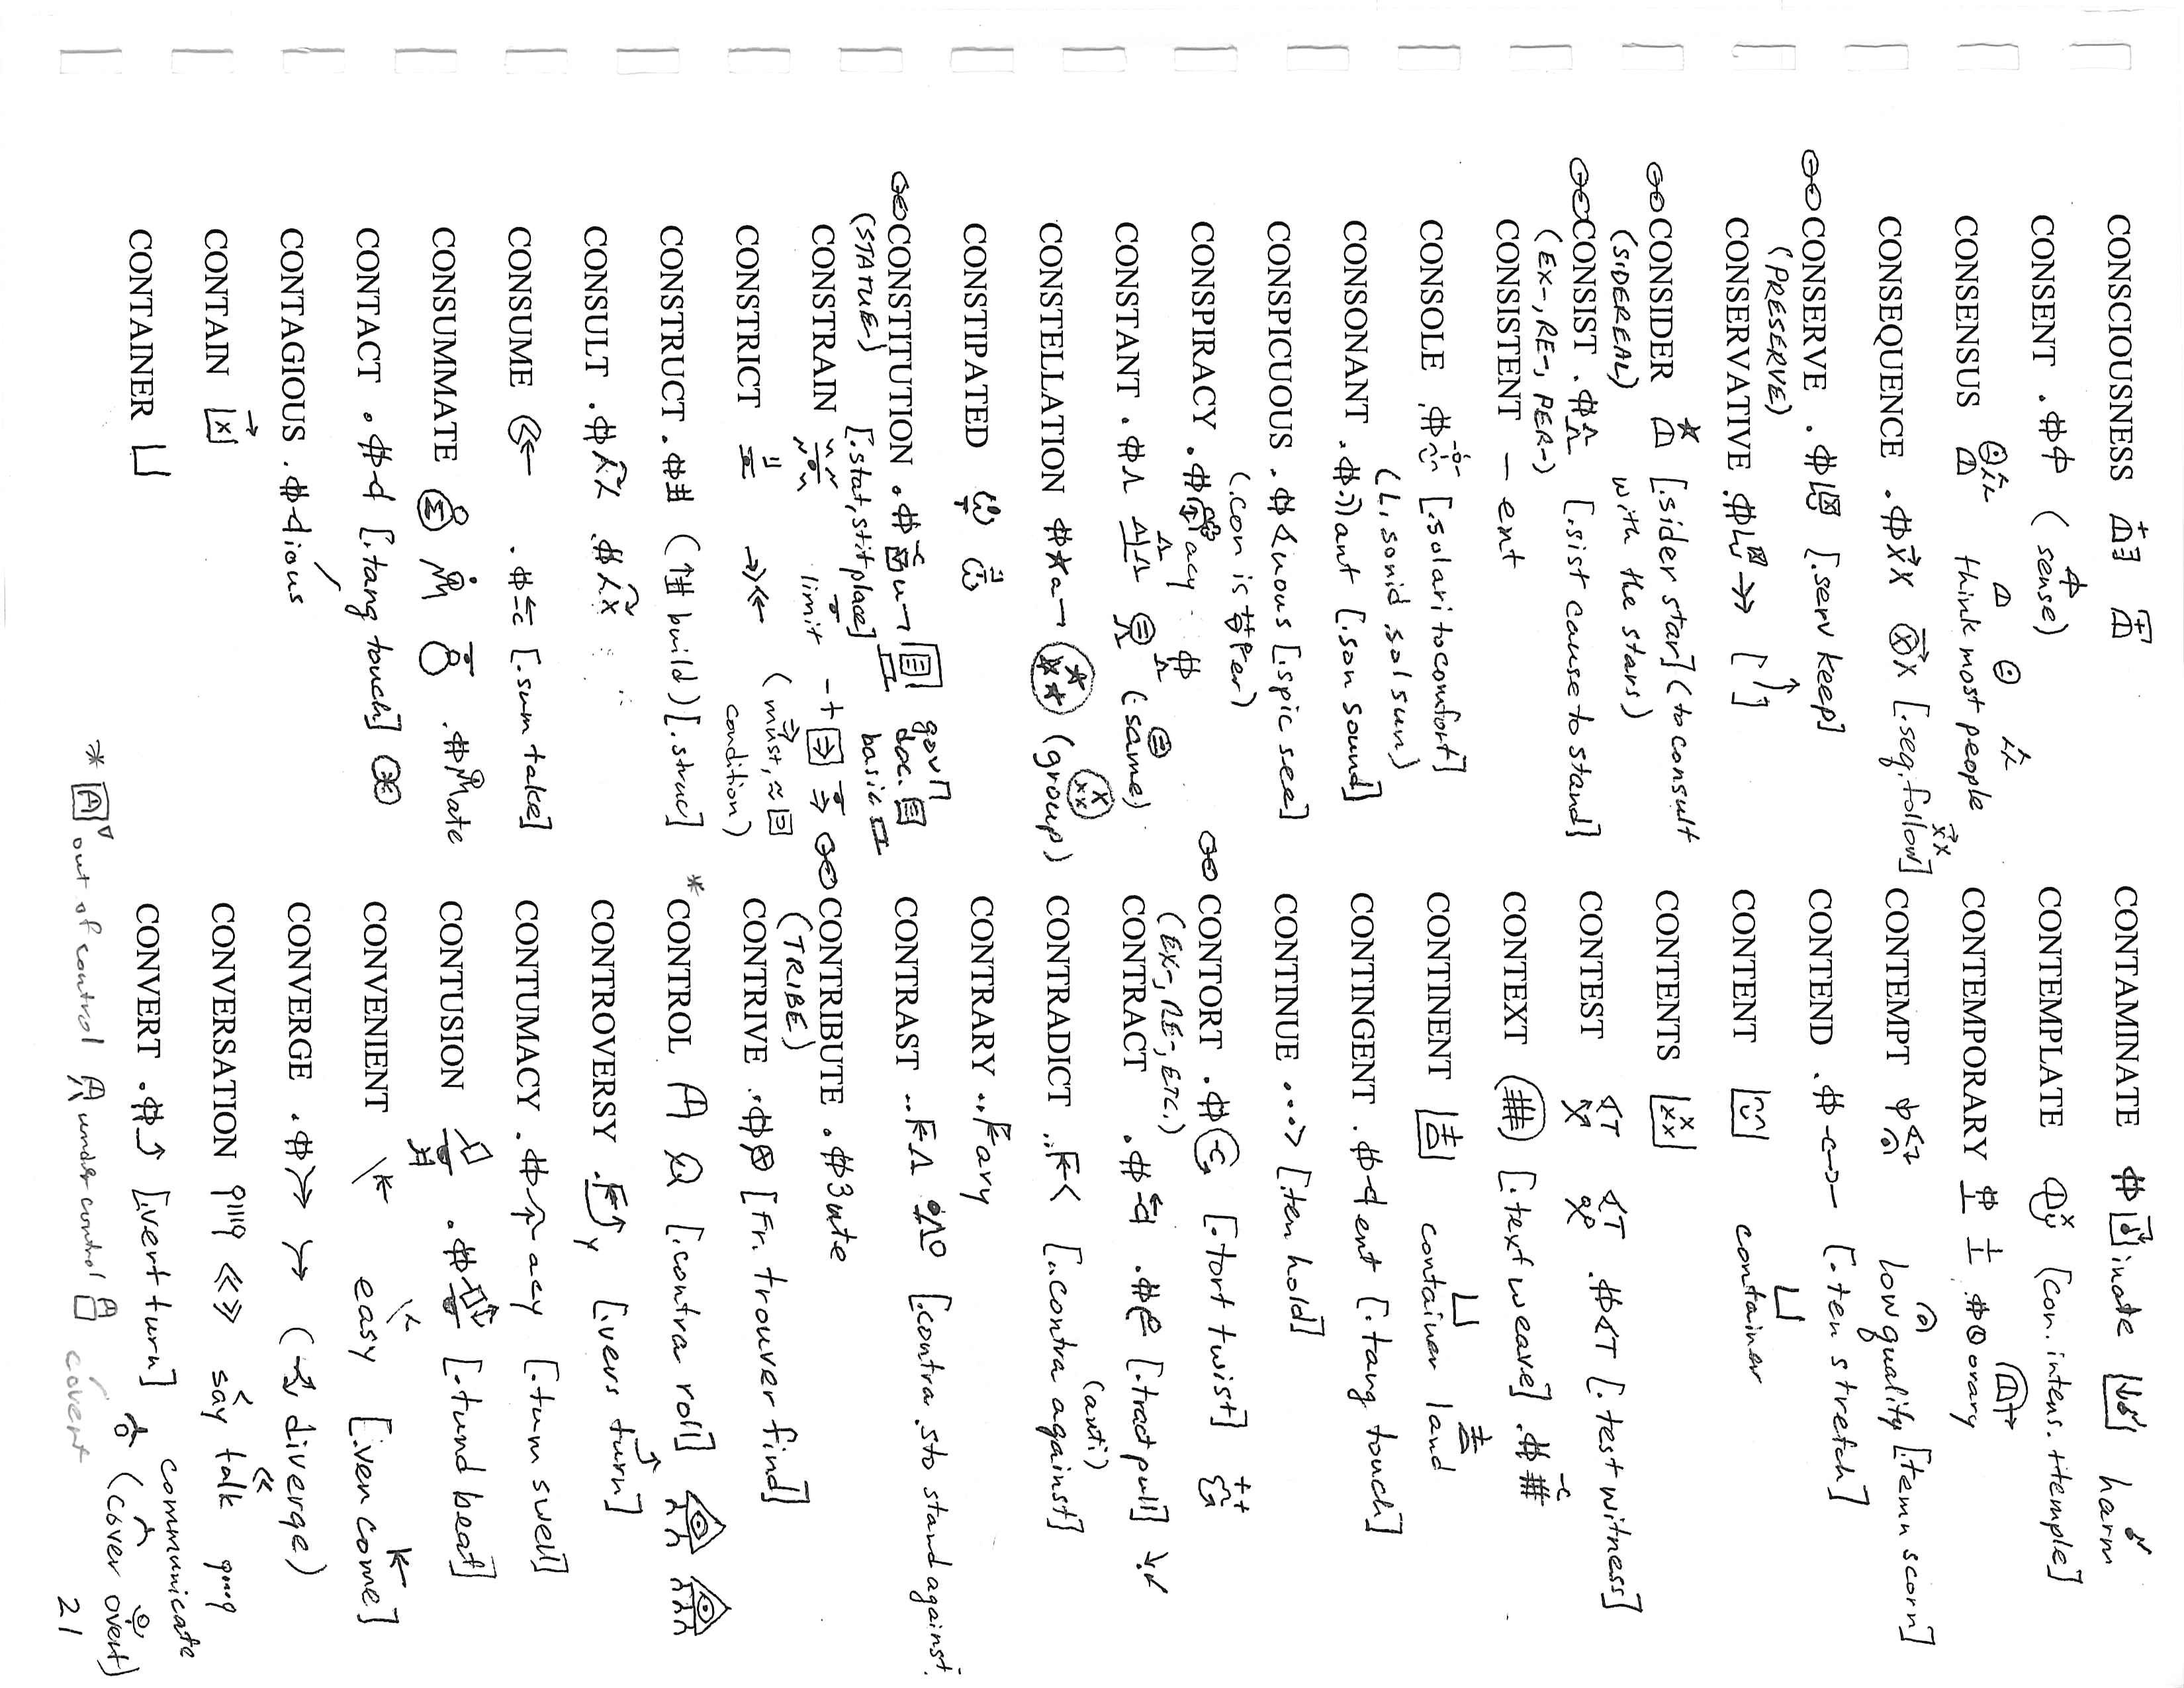 CONSCIOUSNESS
CONSENT (sense)
CONSENSUS think most people
CONSEQUENCE [.seq.follow]
CONSERVE [.serv keep]
(PRESERVE)
CONSERVATIVE
CONSIDER [.sider star] (to consult
(SIDEREAL) with the stars)
CONSIST [.sist cause to stand]
(EX-, RE-, PER-)
CONSISTENT - ent
CONSOLE [.solari to comfort]
(L. sonid .sol sun)
CONSONANT ant [.son sound]
CONSPICUOUS uous [.spic see]
(.con is per)
CONSPIRACY acy
CONSTANT (same)
CONSTELLATION a (group)
CONSTIPATED
CONSTITUTION u gov't doc.
(STATUE) [.stat, stit place] basic
CONSTRAIN limit (must, ≈
CONSTRICT condition)
CONSTRUCT (build) [.struc]
CONSULT
CONSUME [.sum take]
CONSUMMATE mate
CONTACT [.tang touch]
CONTAGIOUS ious
CONTAIN
CONTAINER
CONTAMINATE inate harm
CONTEMPLATE [con.intens.+temple]
CONTEMPORARY orary
CONTEMPT low quality [temn scorn]
CONTEND [.ten stretch]
CONTENT container
CONTENTS
CONTEST [.test witness]
CONTEXT [.text weave]
CONTINENT container land
CONTINGENT ent [.tang touch]
CONTINUE [.ten hold]
CONTORT [.tort twist]
(EX-, RE-, ETC.)
CONTRACT [.tract pull]
(anti)
CONTRADICT [..contra against]
CONTRARY ary
CONTRAST [.contra .sto stand against]
CONTRIBUTE ute
(TRIBE)
CONTRIVE [Fr. trouver find]
* CONTROL [.contra roll]
CONTROVERSY y [.vers turn]
CONTUMACY acy [.tum swell]
CONTUSION [.tund beat]
CONVENIENT easy [.ven come]
CONVERGE (diverge)
CONVERSATION say talk communicate
CONVERT [.vert turn] (cover overt)
* out of control under control covert
21